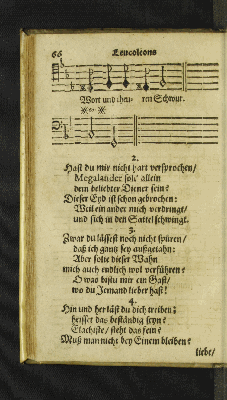 66 Leucoleons
Wort und theu- ren Schwur.
2.
Hast du mir nicht hart versprochen/
Megalander soll' allein
dein beliebter Diener sein?
Dieser Eyd ist schon gebrochen:
Weil ein ander mich verdringt/
und sich in den Sattel schwingt.
3.
Zwar du lässest noch nicht spüren/
daß ich gantz sey
Aber solte dieser Wahn
mich auch endlich wol verführen?
O was bistu mir ein Gast/
wo du Jemand lieber hast!
4.
Hin und her läst du dich treiben:
heisset das beständig seyn?
steht das fein?
Muß man nicht bey Einem bleiben?
liebt/